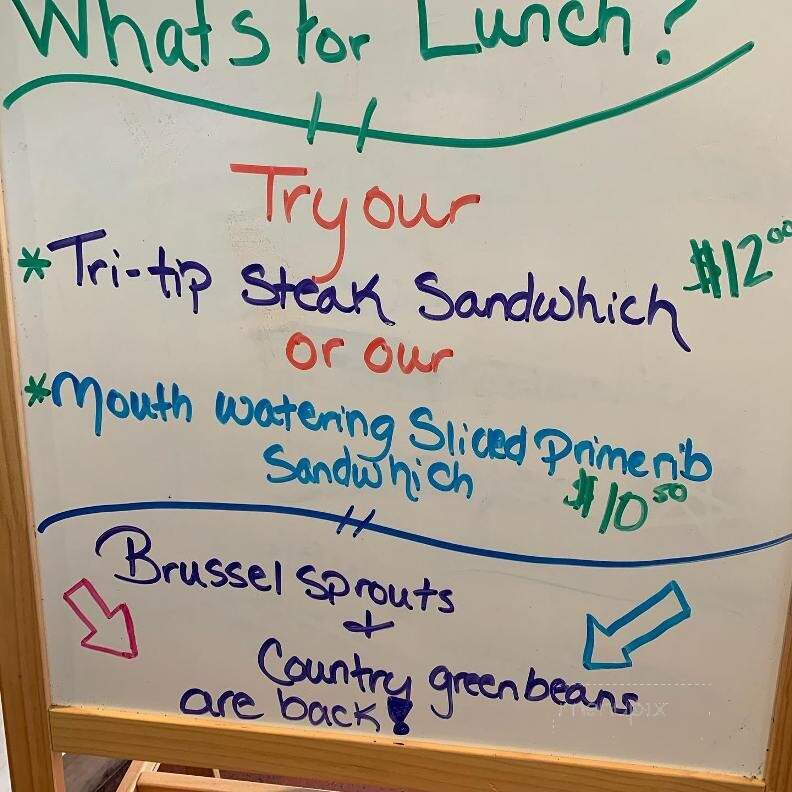 Whats for Lunch?
Try our
* Tri-tip Steak Sandwhich $12.00
or our
* Mouth watering Sliced Primerib
Sandwhich $10.50
Brussel sprouts
+
Country greenbeans
are back!
menupix